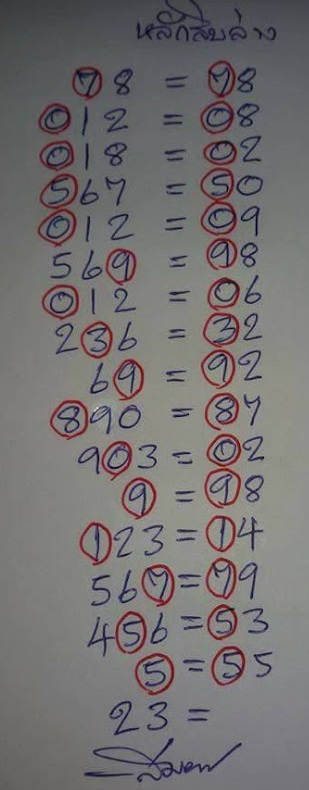 หลักสิบล่าง
78 = 78
012 = 08
018 = 02
567 = 50
012 = 09
569 = 98
012 = 06
236 = 32
69 = 92
890 = 87
903 = 02
9 = 98
123 = 14
567 = 79
456 = 53
5 = 55
23 =